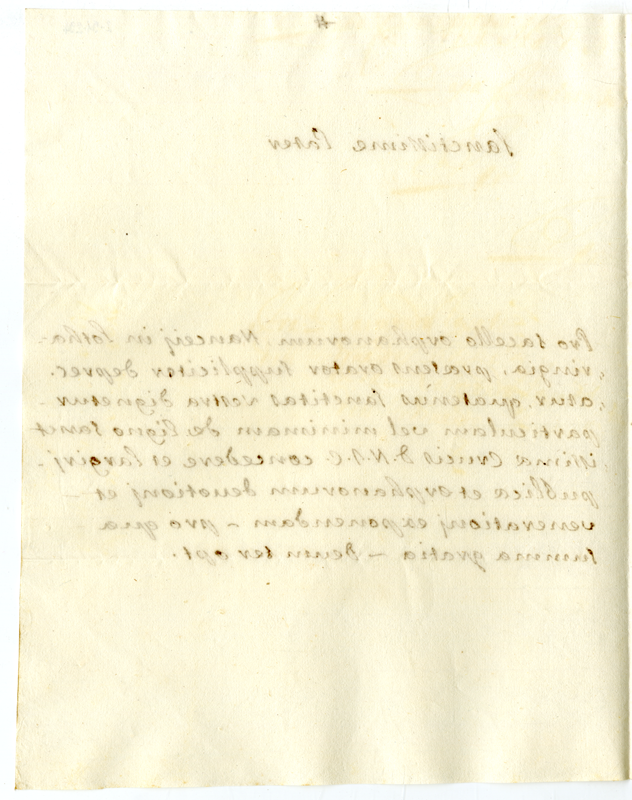 Sanctissime Pater
Pro sacello orphanorum Nanceij in Lotha-
ringia, præsens orator suppliciter deprec.
atur, quatenus sanctitas vestra dignetur
particulam vel minimam de ligno sanct
issimæ Crucis D.N.J.C. concedere et largirj,
publicæ et orphanorum deuotionj et
venerationj exponendam - pro qua
summa gratia - Deum ter opt.